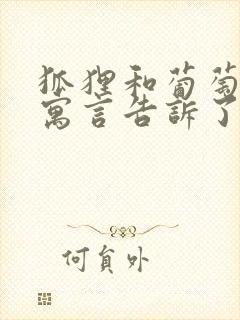 狐狸和葡萄
寓言告訴了
何負外